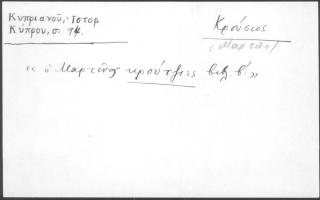 Κυπριανοῦ, Ἱστορ
Κύπρου, σ. 94.
Κρούσιος
(Μαρτῖν)
« ὁ Μαρτῖνος κρούτζιος βιβλ. β΄. »